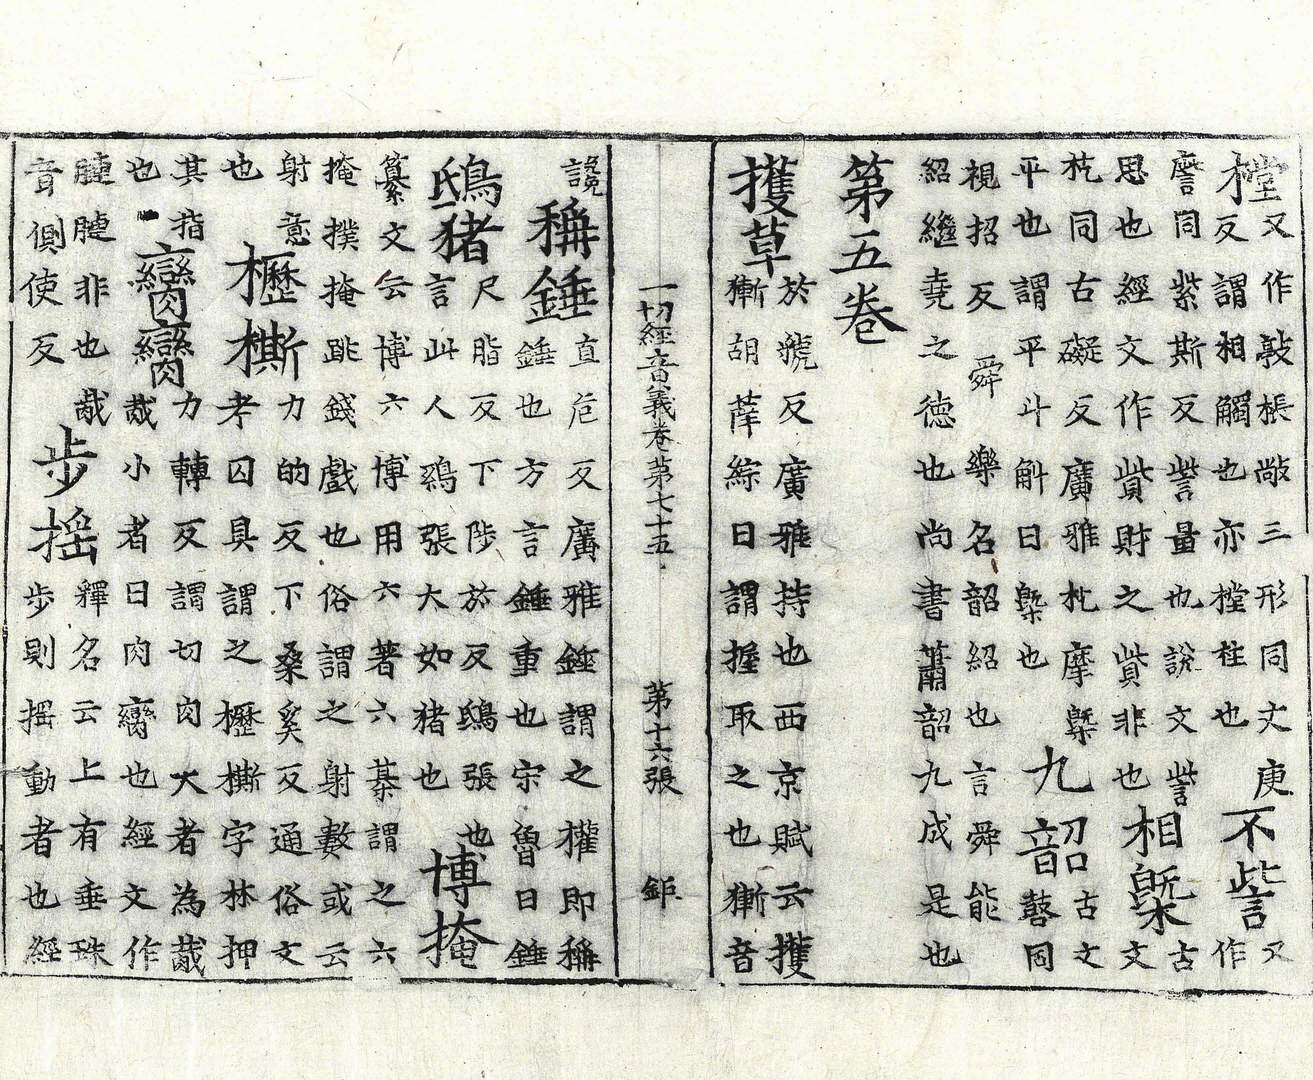 樘又作敼棖敞三形同丈庚
反謂相觸也亦樘柱也不訾又
作
䜣同紫斯反訾量也說文訾
思也經文作貲財之貲非也相㮣古
文
杚同古礙反廣雅杚摩㮣
平也謂平斗斛曰㮣也九韶古文
䪫同
視招反舜樂名韶紹也言舜能
紹繼堯之德也尚書蕭韶九成是也
第五卷
擭草於虢反廣雅持也西京賦云擭
獑胡薛綜曰謂握取之也獑音
一切經音義卷第七十五 第十六張 鉅
讒稱錘直危反廣雅錘謂之權即稱
錘也方言錘重也宋魯曰錘
鴟猪尺脂反下陟於反鴟張也
言此人鵶張大如猪也博掩
纂文云博六博用六著六棊謂之六
掩撲掩跳錢戲也俗謂之射數或云
射意
也櫪㯕力的反下桑奚反通俗文
考囚具謂之櫪㯕字林押
其指
也臠臠力轉反謂切肉大者為胾
胾小者曰肉臠也經文作
腫腫非也胾
音側使反步摇釋名云上有垂珠
步則摇動者也經